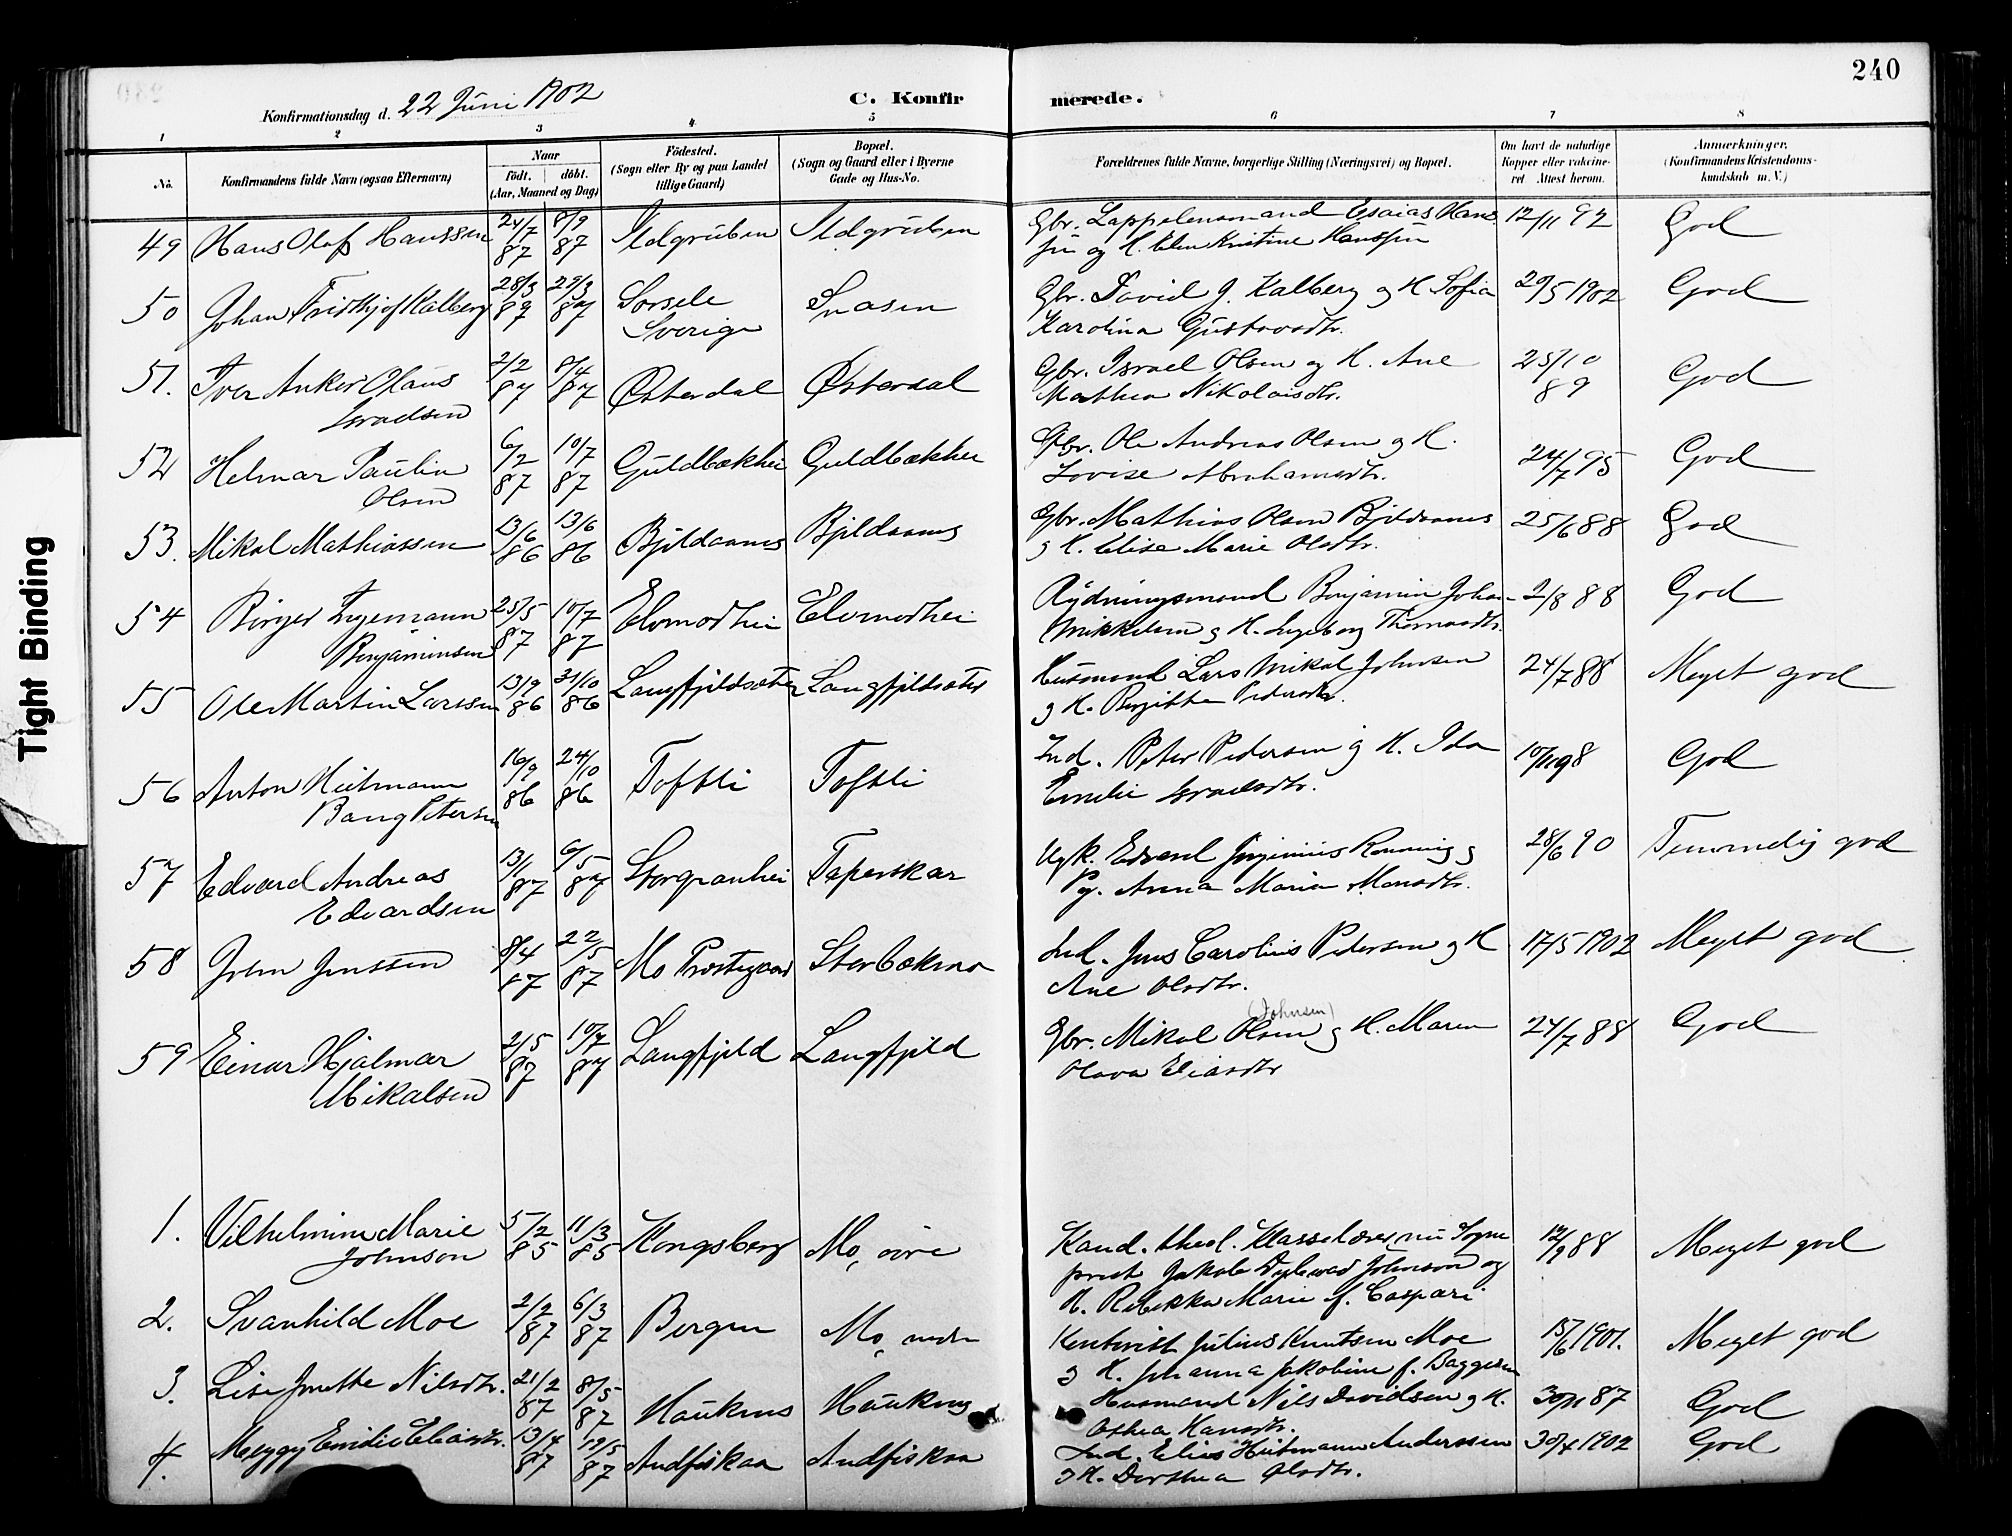 240
Konfirmationsdag d. 22 Juni 1902
C. Konfirmerede.
1 2 3 4 5 6 7 8
No.
Konfirmandens fulde Navn (ogsaa Efternavn)
Naar
födt. döbt.
(Aar, Maaned og Dag)
Födested.
(Sogn eller By og paa Landet
tillige Gaard)
Bopæl.
(Sogn og Gaard eller i Byerne
Gade og Hus-No.
Forældrenes fulde Navne, borgerlige Stilling (Næringsvei) og Bopæl.
Om havt de naturlige
Kopper eller vakcine-
ret Attest herom.
Anmærkninger.
(Konfirmandens Kristendoms-
kundskab m. V.)
49 Hans Olaf Hanssen 24/7 87 8/9 87 Ildgruben Ildgruben Gbr. Lappelensmand Esaias Hans
sen og H. Elen Kristine Hanssen 12/11 92 God
50 Johan Fridthjof Kalberg 28/3 87 29/3 87 Sorsele Sverige Snasen Gbr. David J. Kalberg og H. Sofia
Karolina Gustavsdtr. 29/5 1902 God
51. Iver Anker Olaus Israelsen 2/2 87 8/4 87 Østerdal Østerdal Gbr. Israel Olsen og H. Ane
Mathea Nikolaisdtr. 25/10 89 God
52 Helmar Paulin Olsen 6/2 87 10/7 87 Guldbækhei Guldbækhei Gbr. Ole Andreas Olsen og H.
Lovise Abrahamsdtr. 24/7 95 God
53. Mikal Mathiassen 13/6 86 13/6 86 Bjeldaanes Bjeldaanes Gbr. Mathias Olsen Bjeldaanes
og H. Elise Marie Olsdtr. 25/6 88 God
54 Birger Ingemann Benjaminsen 25/5 87 10/7 87 Elvmodhei Elvmodhei Rydningsmand Benjamin Johan
Mikkelsen og H. Ingeborg Thomasdtr. 2/8 88 God
55 Ole Martin Larssen 13/9 86 31/10 86 Langfjeldsæter Langfjeldsæter Husmand Lars Mikal Johnsen
og H. Bergitte Pedersdtr. 24/7 88 Meget god
56 Anton Heitmann Bang Petersen 16/9 86 24/10 86 Toftli Toftli Ind. Peter Pedersen og H. Ida
Emilie Israelsdtr. 10/11 98 God
57 Edvard Andreas Edvardsen 13/1 87 6/5 87 Storgranhei Taperskar Ugk. Edvard Rønning og
Pg. Anna Maria Monsdtr. 28/6 90 Temmelig god
58 Jrem Jenssen 8/4 87 22/5 87 Mo Prestegaard Storbækmo Ind. Jens Carolius Pedersen og H
Ane Olsdtr. 17/5 1902 Meget god
59 Einar Hjalmar Mikalsen 2/5 87 10/7 87 Langfjeld Langfjeld Gbr. Mikal Olsen (Johnsen) og H. Maren
Olava Eliasdtr 24/7 88 God
1. Vilhelmine Marie Johnson 5/2 85 11/3 85 Kongsberg Mo, øvre Kand. theol. Klasselærer, nu Sogne
prest Jakob Johnson og
H. Rebekka Marie f. Caspari 12/9 88 Meget god
2. Svanhild Moe 2/2 87 6/3 87 Bergen Mo, nedre Kontorist Julius Knutsen Moe
og H. Johanna Jakobine f. Baggesen 15/6 1901. Meget god
3. Lise Jonette Nilsdtr. 21/2 87 8/5 87 Haukenes Haukenes Husmand Nils Davidsen og H.
Osthea Hansdtr. 30/11 87 God
4. Meyggy Emilie Eliasdtr. 13/4 87 19/5 87 Andfiskaa Andfiskaa Ind. Elias Heitmann Anderssen
og H. Dorthea Olsdtr. 30/4 1902 God
Tight Binding